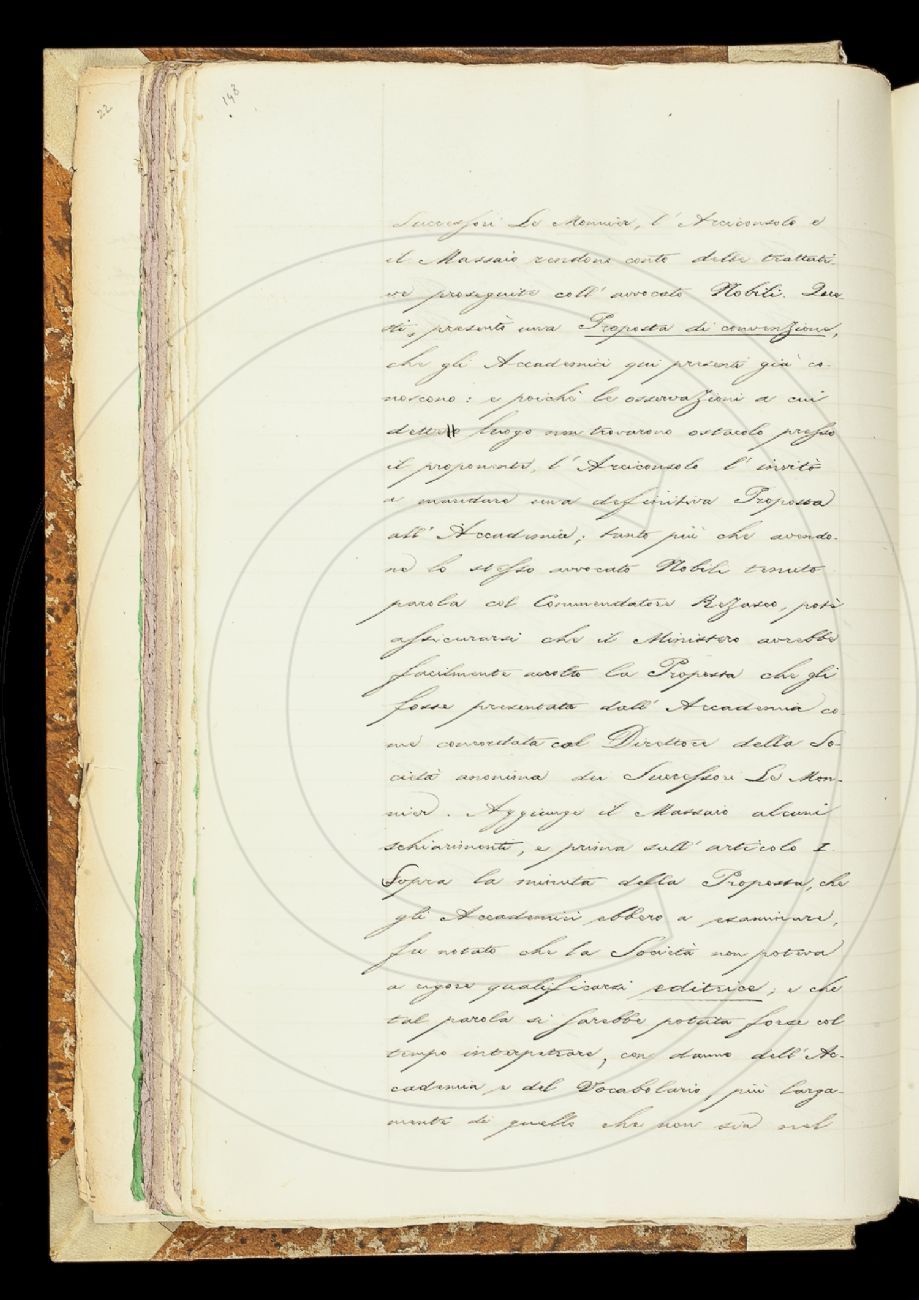 22
148
Successori Le Monnier, l'Arciconsolo e
il Massaio rendono conto delle trattati-
ve proseguite coll'avvocato Nobili. Que-
sti, presentò una Proposta di convenzione,
che gli Accademici qui presenti già co-
noscono: e poichè le osservazioni a cui
dette luogo non trovarono ostacolo presso
il proponente, l'Arciconsolo l'invitò
a mandare una definitiva Proposta
all'Accademia; tanto più che avendo-
ne lo stesso avvocato Nobili tenuto
parola col Commendatore Rezasco, potè
assicurarsi che il Ministero avrebbe
facilmente accolto la Proposta che gli
fosse presentata dall'Accademia co-
me concordata col Direttore della So-
cietà anonima dei Successori Le Mon-
nier. Aggiunge il Massaio alcuni
schiarimenti, e prima sull'articolo I
Sopra la minuta della Proposta, che
gli Accademici ebbero a esaminare,
fu notato che la Società non poteva
a rigore qualificarsi editrice; e che
tal parola si sarebbe potuta forse col
tempo interpetrare, con danno dell'Ac-
cademia e del Vocabolario, più larga-
mente di quello che non sia nel